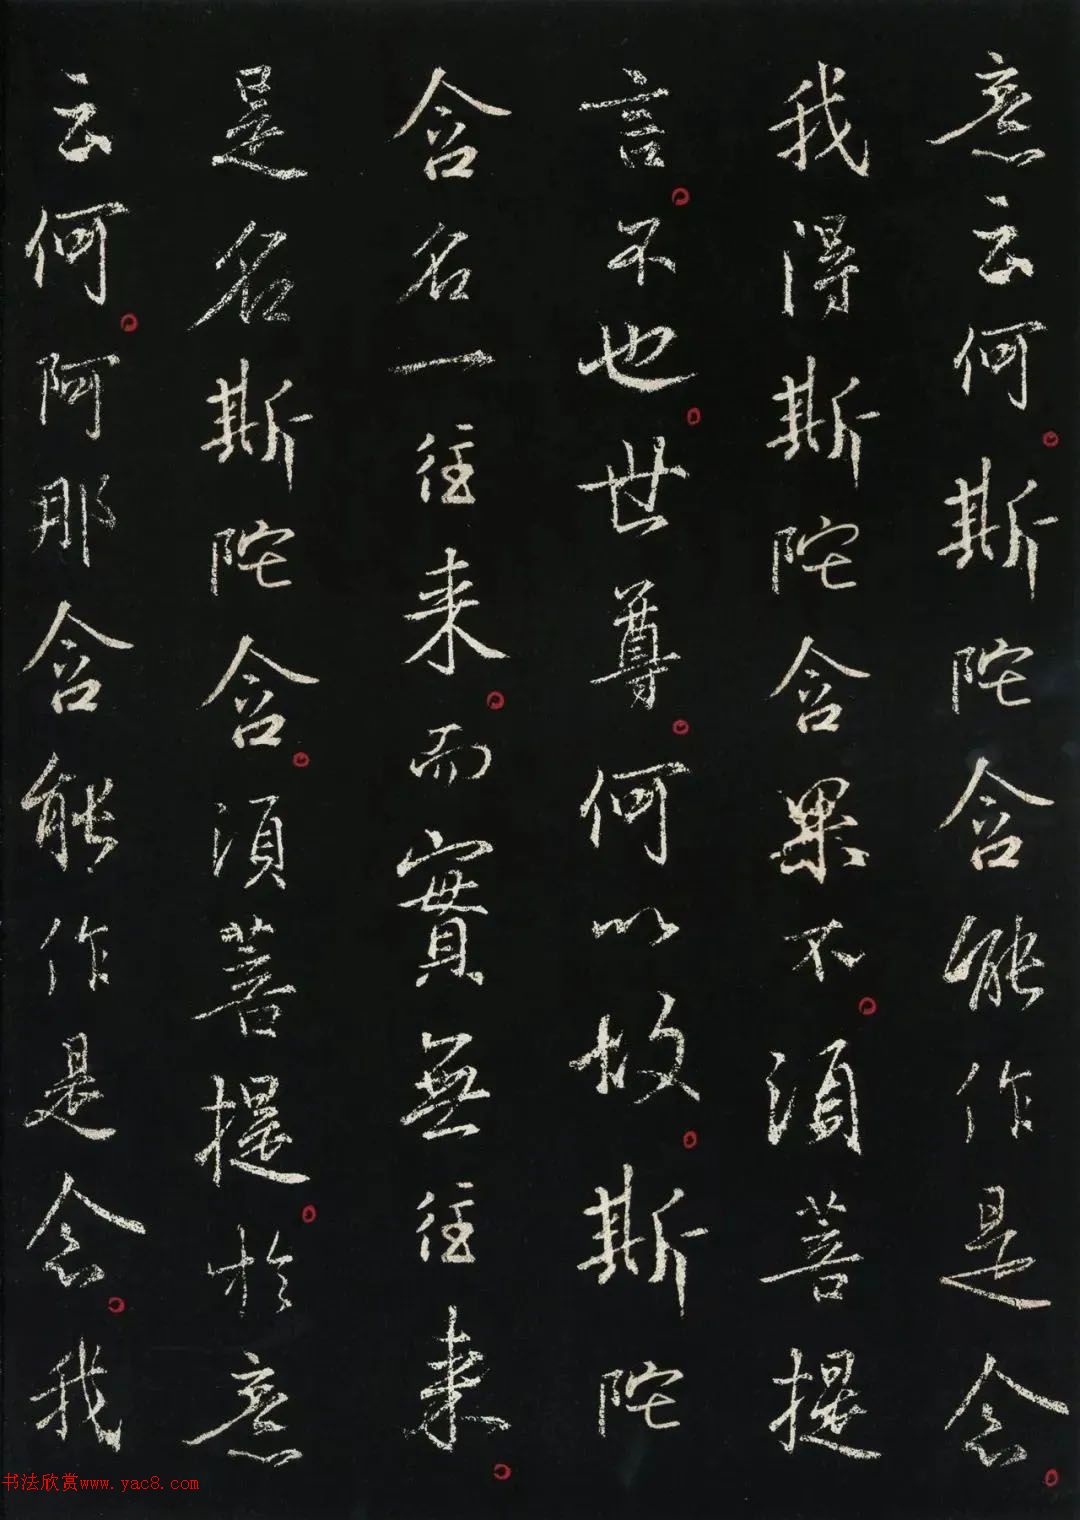 意云何。斯陀含能作是念。
我得斯陀含果不。須菩提
言。不也。世尊。何以故。斯陀
含名一往来。而實無往来。
是名斯陀含。須菩提。於意
云何。阿那含能作是念。我
书法欣赏www.yac8.com